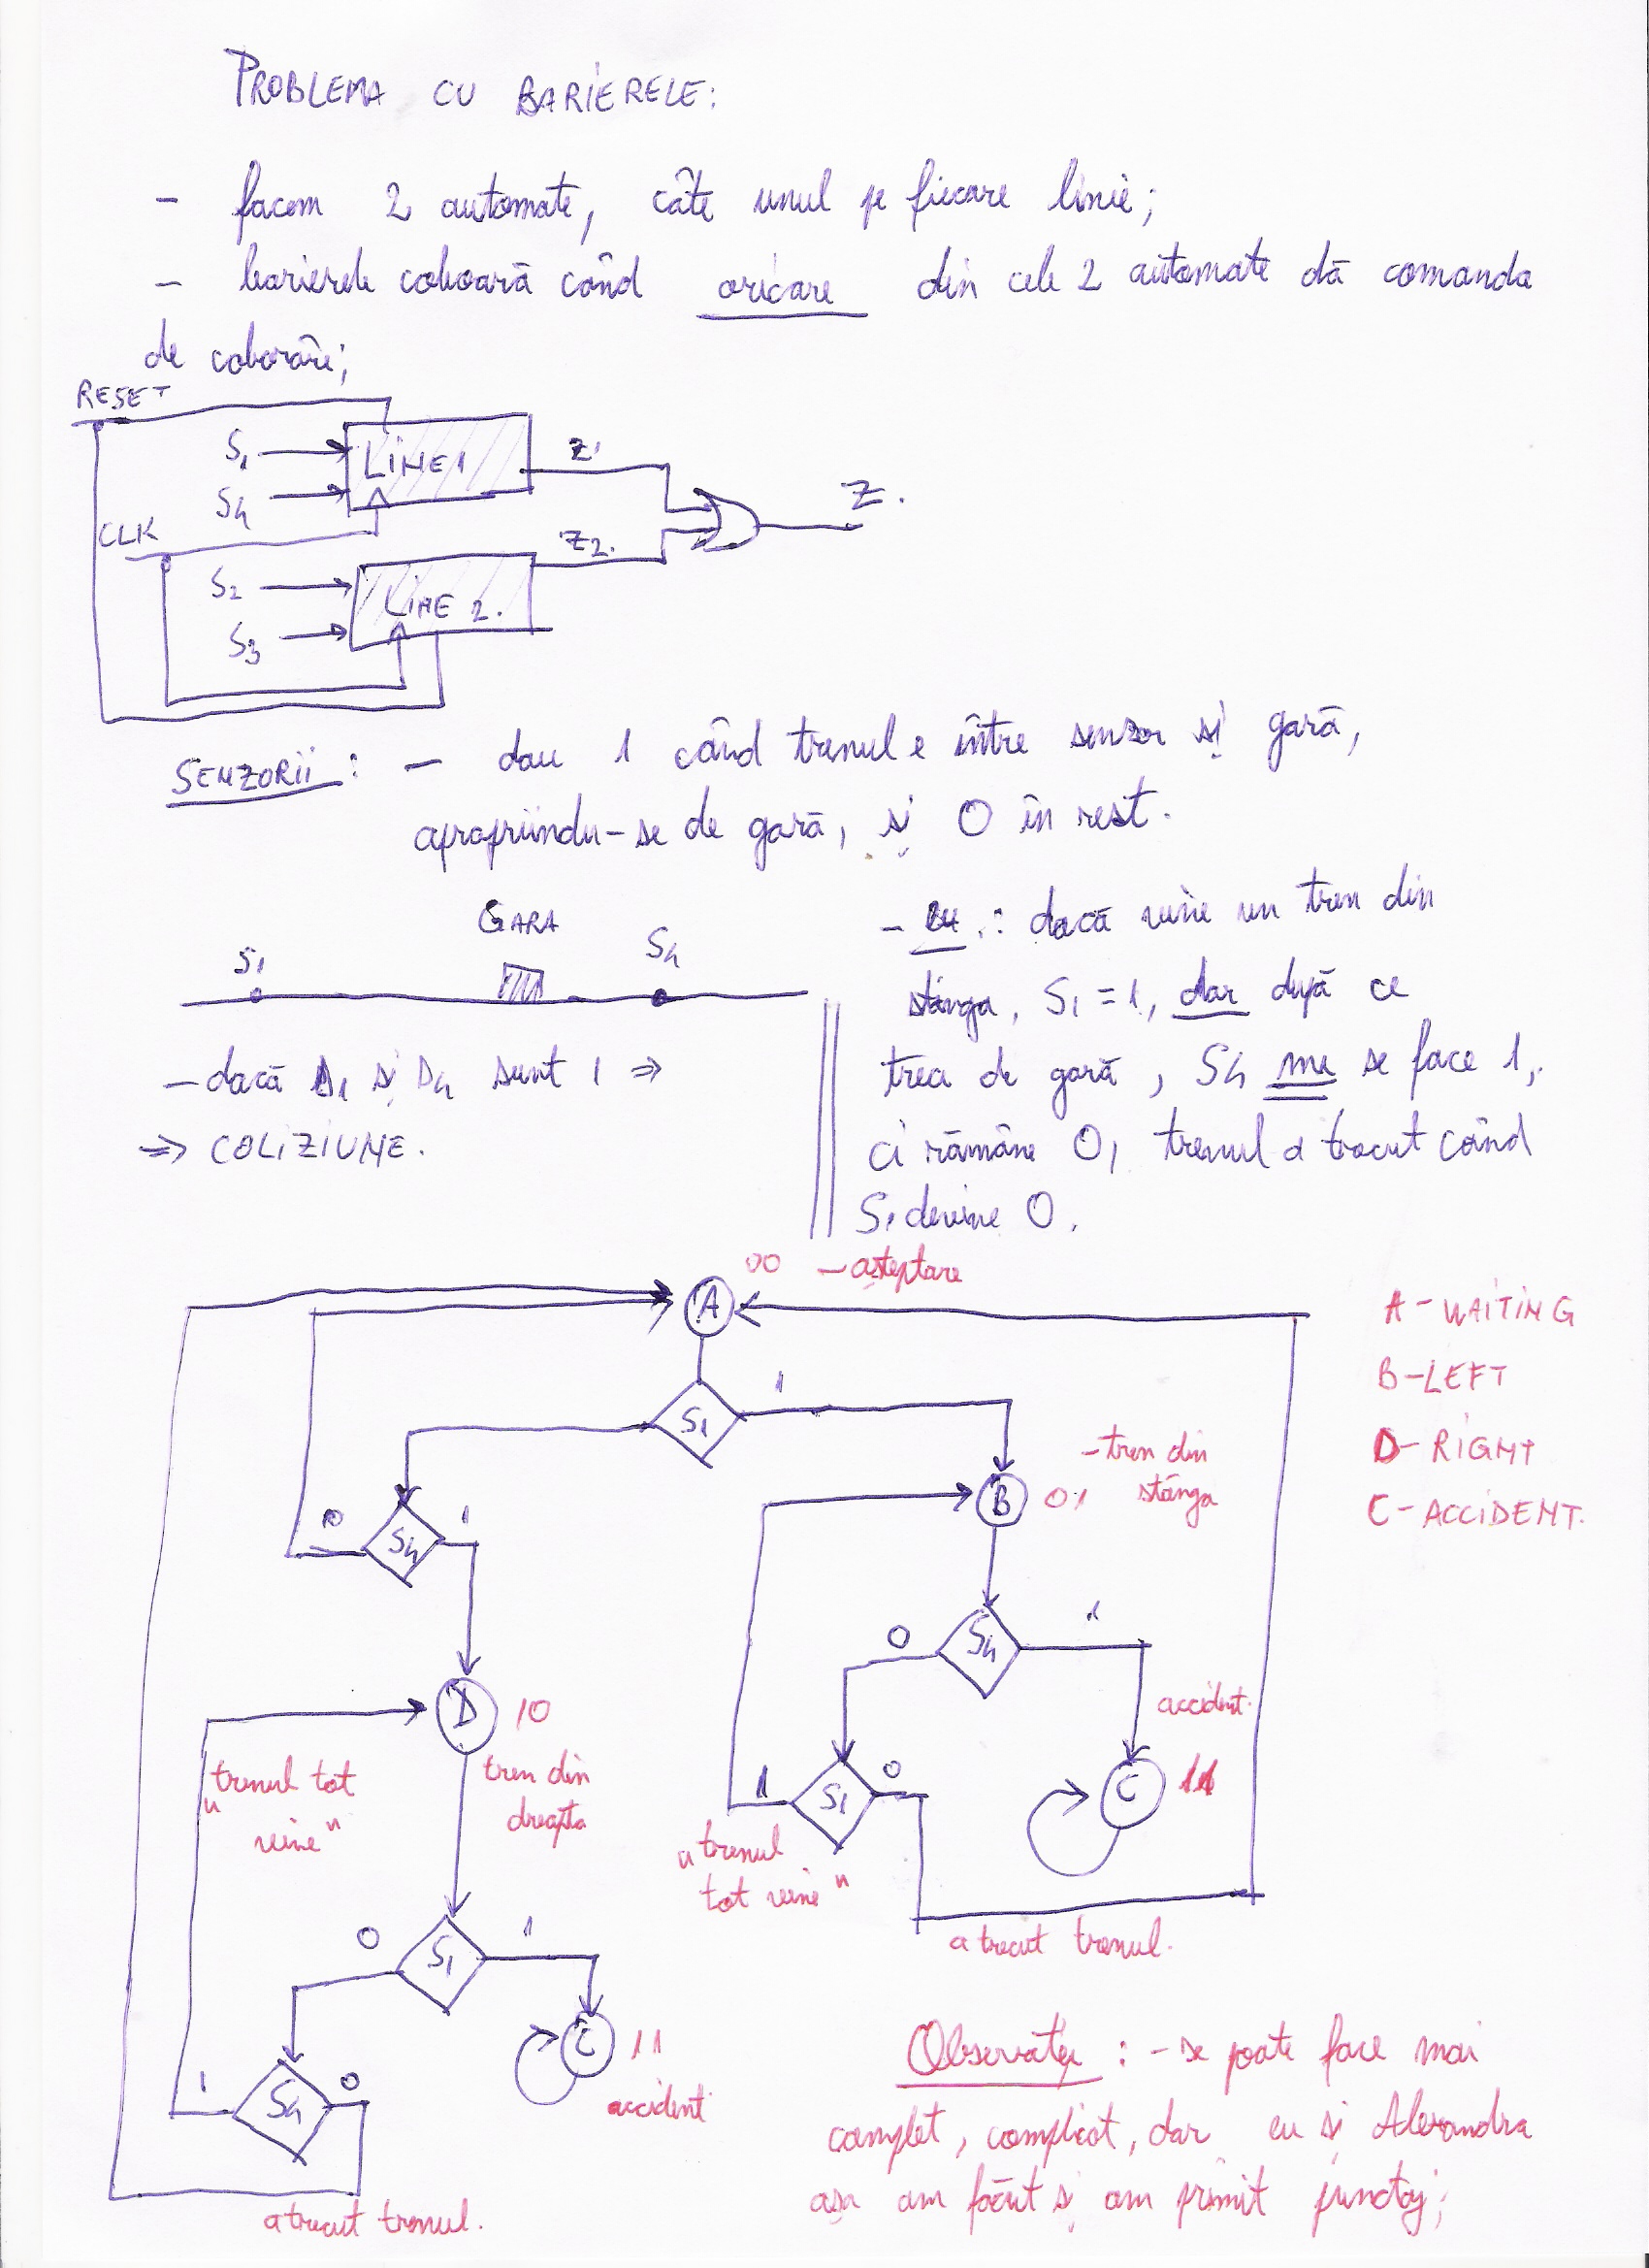 PROBLEMA CU BARIERELE:
- facem 2 automate, câte unul pe fiecare linie;
- barierele coboară când oricare din cele 2 automate dă comanda
de coborâre;
RESET
S1
LINE 1
Z1
S4
Z.
CLK
Z2.
S2
LINE 2.
S3
SENZORII: - dau 1 când trenul e între senzor și gară,
apropiindu-se de gară, și 0 în rest.
GARA
S1
S4
- dacă S1 și S4 sunt 1 ⇒
⇒ COLIZIUNE.
- : dacă vine un tren din
stânga, S1 = 1, dar după ce
trece de gară, S4 nu se face 1,
ci rămâne 0, trenul a trecut când
S1 devine 0.
00 - așteptare
A
A - WAITING
B - LEFT
D - RIGHT
C - ACCIDENT.
S1
1
- tren din
stânga
B
01
0
S4
1
S4
0
1
accident.
D
10
tren din
dreapta
"trenul tot
vine"
S1
1
0
C
11
"trenul
tot vine"
a trecut trenul.
S1
0
1
C
11
accident
S4
1
0
a trecut trenul.
Observație: - se poate face mai
complet, complicat, dar eu și Alexandra
așa am făcut și am primit punctaj;